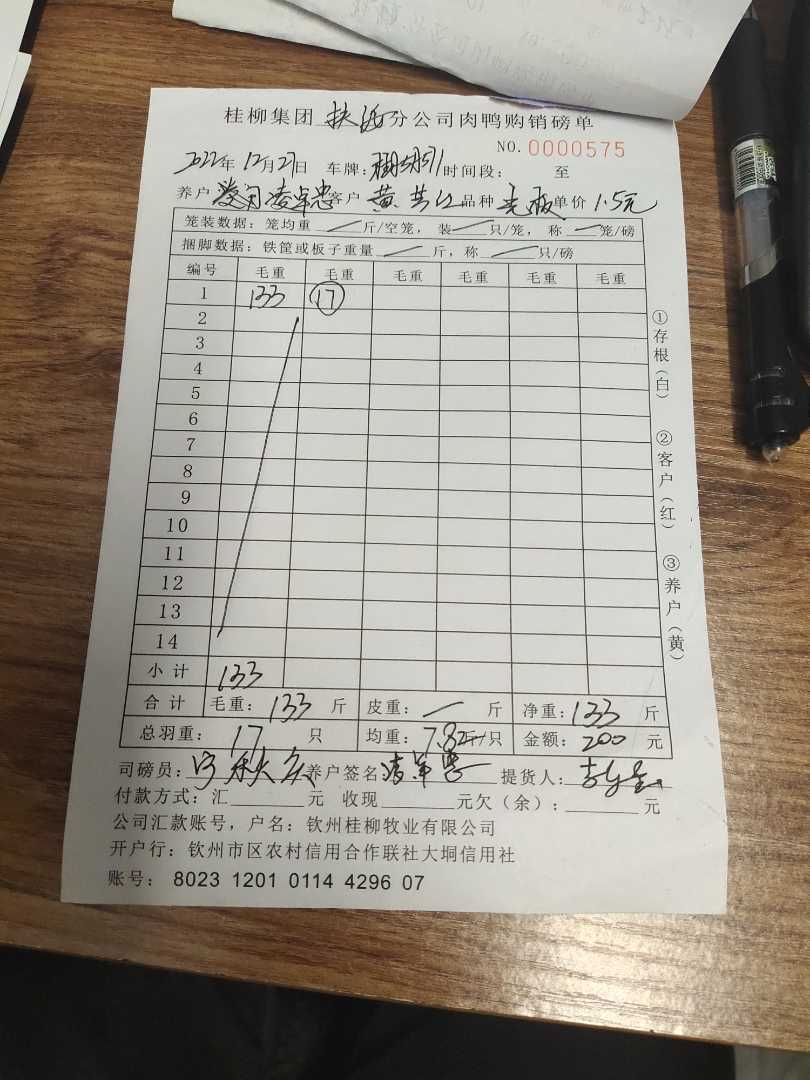 桂柳集团 分公司肉鸭购销磅单
NO. 0000575
2022年 12月27日 车牌: 时间段: 至
养户 凌卓忠 客户 黄 品种 单价 1.5元
笼装数据: 笼均重 斤/空笼, 装 只/笼, 称 笼/磅
捆脚数据: 铁筐或板子重量 斤, 称 只/磅
编号 毛重 毛重 毛重 毛重 毛重 毛重
1 133 17
2
3
4
5
6
7
8
9
10
11
12
13
14
小计 133
合计 毛重: 133 斤 皮重: 斤 净重: 133 斤
总羽重: 17 只 均重: 7.82斤/只 金额: 200 元
司磅员: 养户签名 凌卓忠 提货人:
付款方式: 汇 元 收现 元欠(余): 元
公司汇款账号, 户名: 钦州桂柳牧业有限公司
开户行: 钦州市区农村信用合作联社大垌信用社
账号: 8023 1201 0114 4296 07
①存根(白) ②客户(红) ③养户(黄)